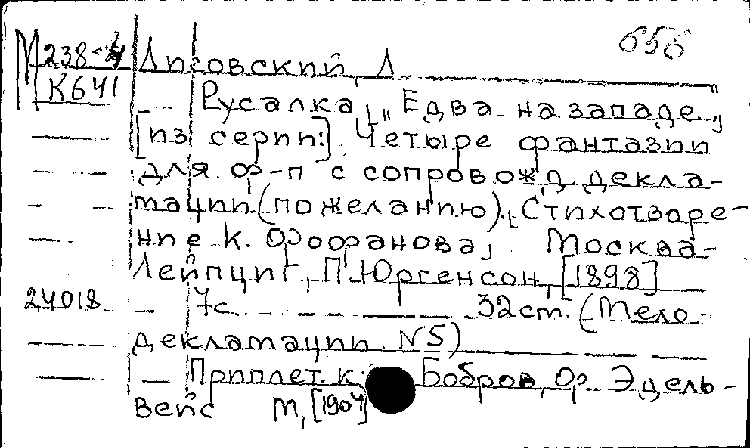 656
М238-4 Лисовский, Л
К641 Русалка „Едва на западе„
[из серии:] Четыре фантазии
для ф-п с сопровожд. декла-
мации (по желанию). Стихотворе-
ние К. Фофанова, Москва-
Лейпциг, П. Юргенсон, [1898]
24018 7с 32ст. (Мело
декламации N5)
Приплет. к: Бобров, Ф. Эдель-
вейс М, [1904]